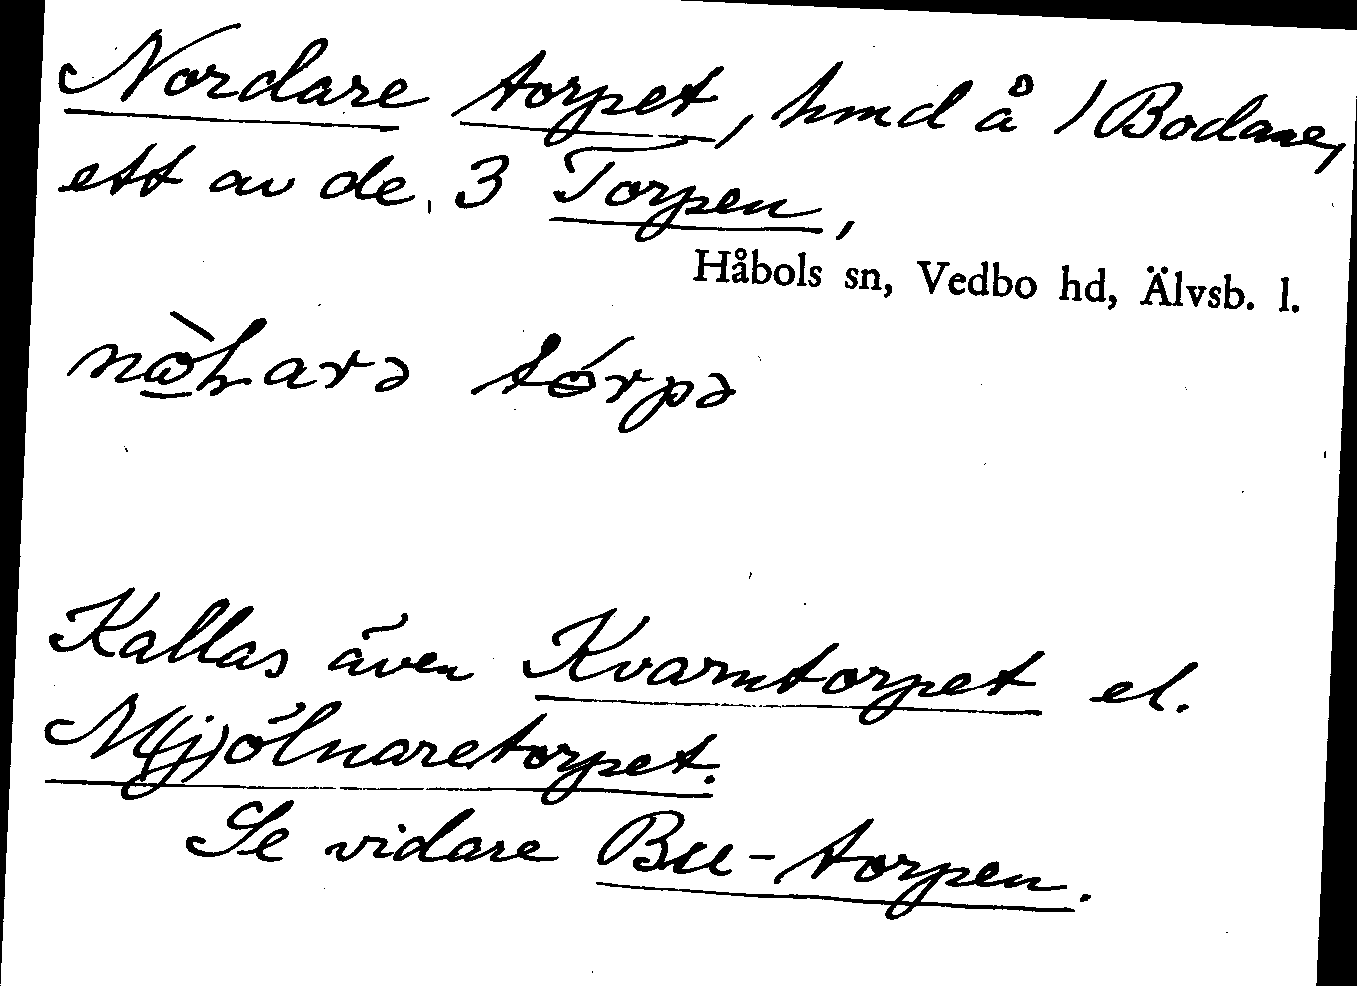 Nordare torpet, hmd å 1 Bodane,
ett av de 3 Torpen,
Håbols sn, Vedbo hd, Älvsb. l.
Kallas även Kvarntorpet el.
M(j)ölnaretorpet.
Se vidare Bu-torpen.